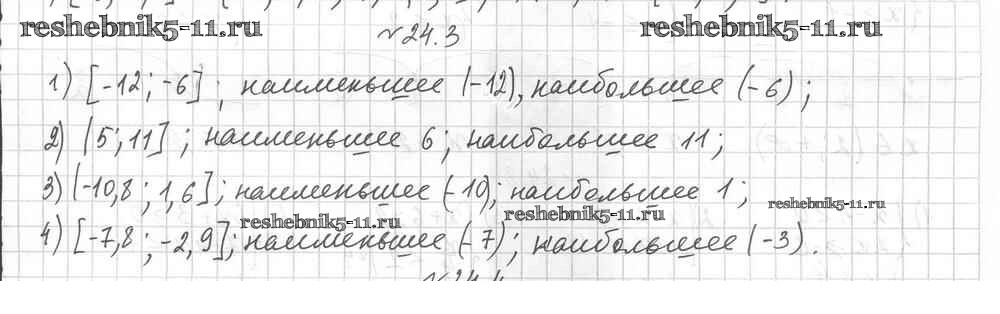 reshebnik5-11.ru №24.3 reshebnik5-11.ru
1) [-12; -6]; наименьшее (-12), наибольшее (-6);
2) (5; 11]; наименьшее 6; наибольшее 11;
3) (-10,8; 1,6]; наименьшее (-10); наибольшее 1;
reshebnik5-11.ru reshebnik5-11.ru reshebnik5-11.ru
4) [-7,8; -2,9]; наименьшее (-7); наибольшее (-3).